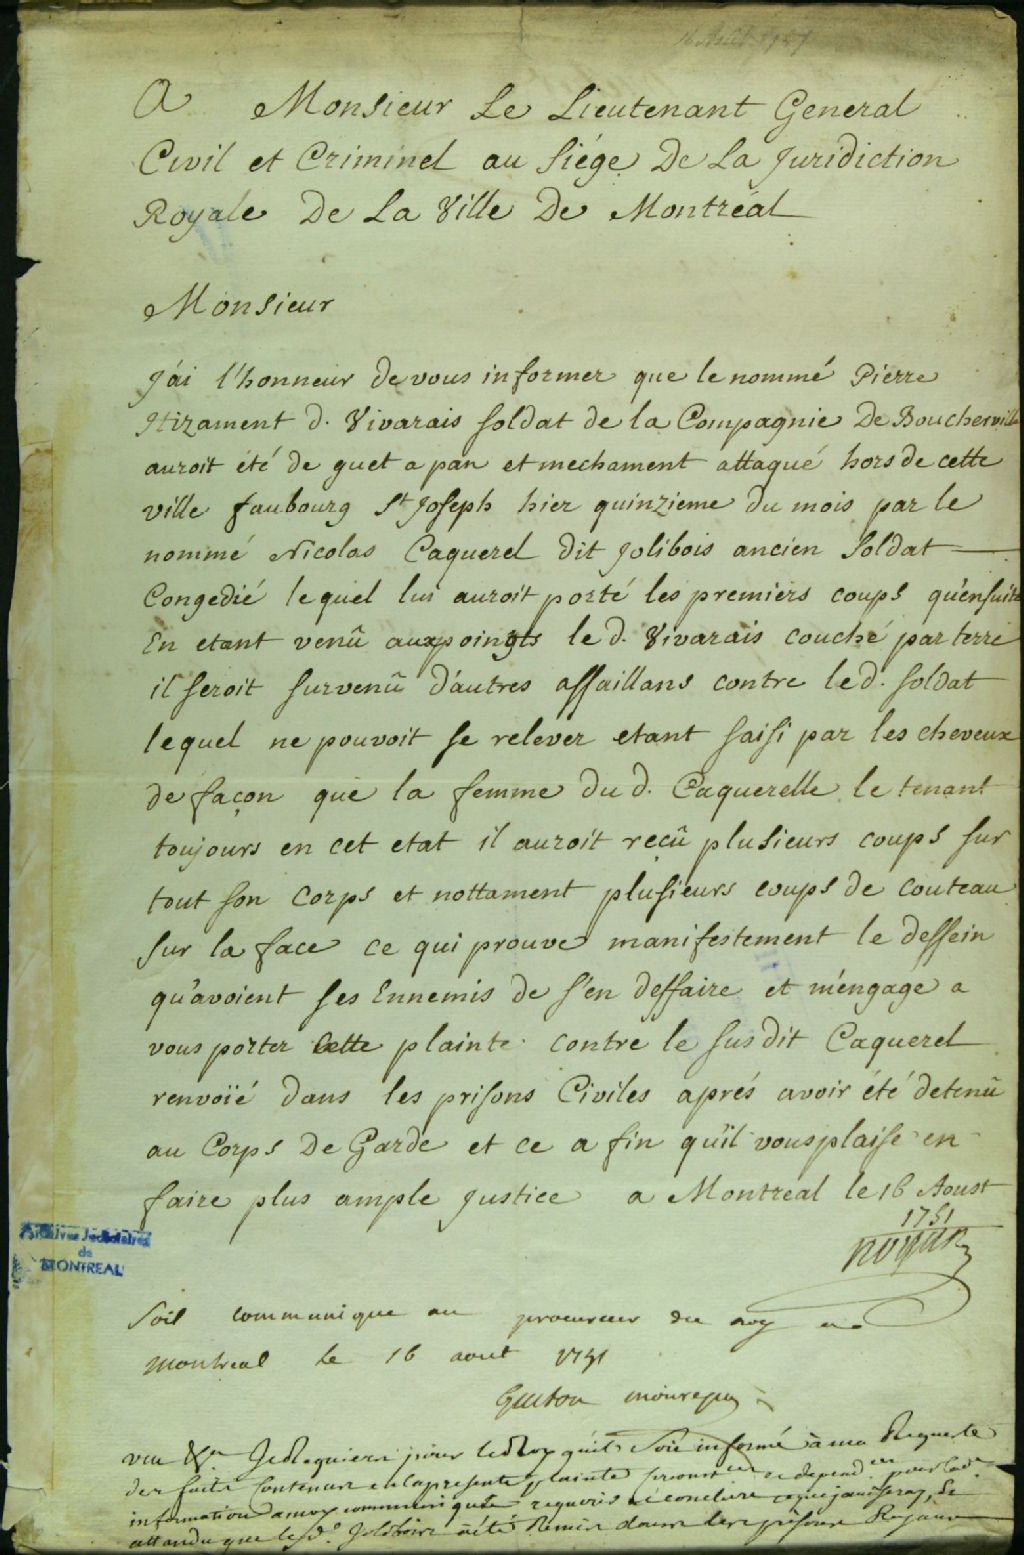 A Monsieur Le Lieutenant General
Civil et Criminel au Siége De La Juridiction
Royale De La Ville De Montréal
Monsieur
J'ai l'honneur de vous informer que le nommé Pierre
d. Vivarais soldat de la Compagnie De Boucherville
auroit été de guet a pan et mechament attaqué hors de cette
ville faubourg St Joseph hier quinzieme du mois par le
nommé Nicolas Caquerel dit Jolibois ancien Soldat
Congedié lequel lui auroit porté les premiers coups qu'ensuite
En etant venû aux poingts le d. Vivarais couché par terre
il seroit survenû d'autres assaillans contre le d. soldat
lequel ne pouvoit se relever etant saisi par les cheveux
de façon que la femme du d. Caquerelle le tenant
toujours en cet etat il auroit reçû plusieurs coups sur
tout son corps et nottament plusieurs coups de couteau
sur la face ce qui prouve manifestement le dessein
qu'avoient ses Ennemis de s'en deffaire et m'engage a
vous porter cette plainte contre le susdit Caquerel
renvoïé dans les prisons Civiles aprés avoir été detenû
au Corps De Garde et ce a fin qu'il vous plaise en
faire plus ample Justice a Montreal le 16 Aoust
1751
Noyan
Archives Judiciaires
de
MONTREAL
Soit communique au procureur du roy a
montreal le 16 aout 1751
Guiton monrepos
veu Je Requiers pour le Roy qu'il Soit informé à ma Requete
des faits Contenus en la presente plainte pour lad.
information a moy communiquée requeris et conclure ce que
attendu que led. Jolibois a été Remis dans les prisons Royaux